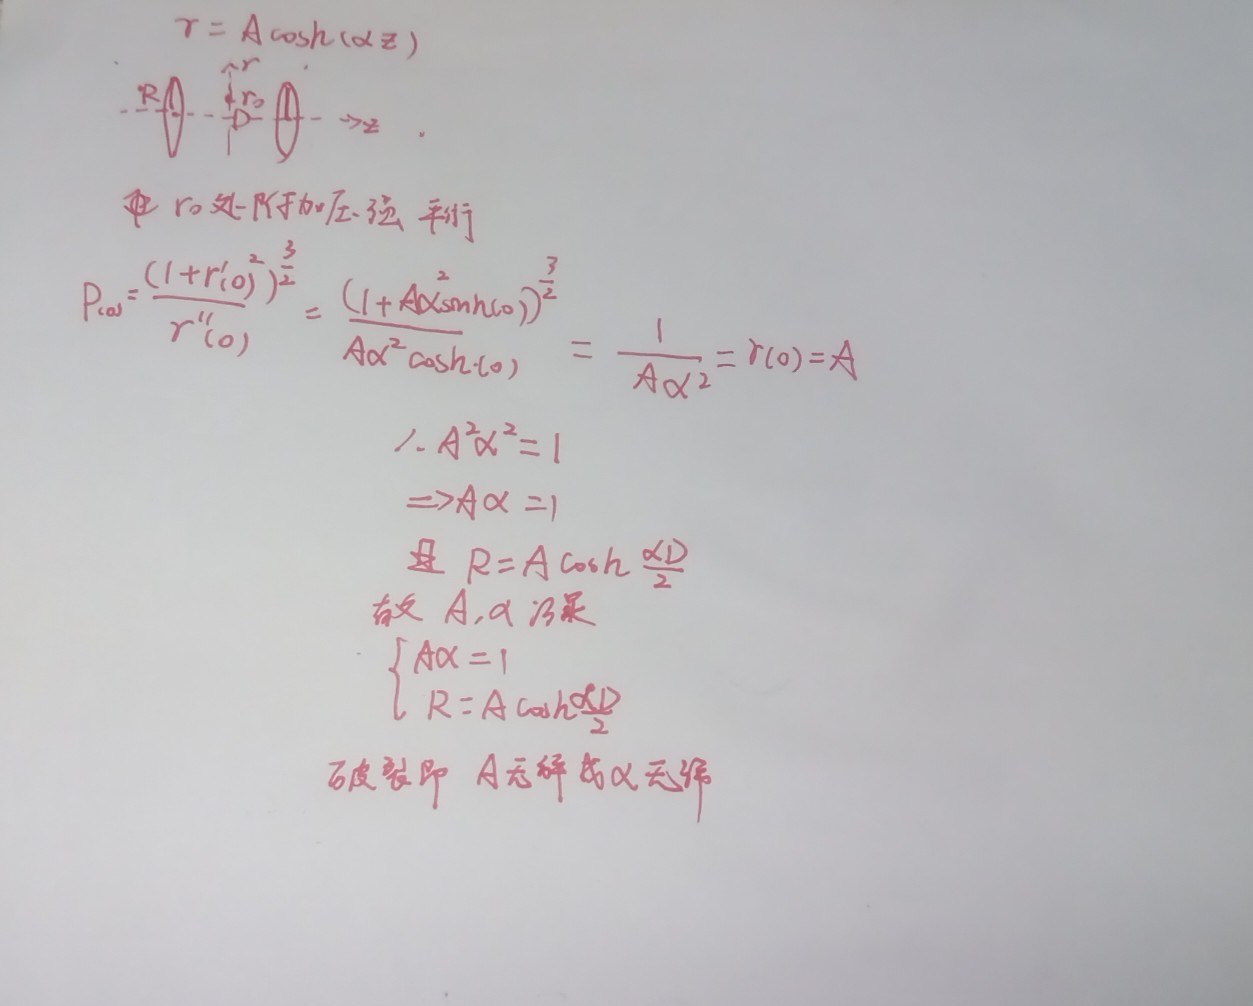 r = A cosh(αz)
r
R r₀
D →z
r₀处附加压强平衡
P(0) = (1+r'(0)²)^(3/2) / r''(0) = (1+Aα²sinh(0))^(3/2) / Aα²cosh(0) = 1/(Aα²) = r(0) = A
∴ A²α² = 1
=> Aα = 1
且 R = A cosh αD/2
故 A, α 满足
{ Aα = 1
R = A cosh αD/2
破裂即 A无解或α无解